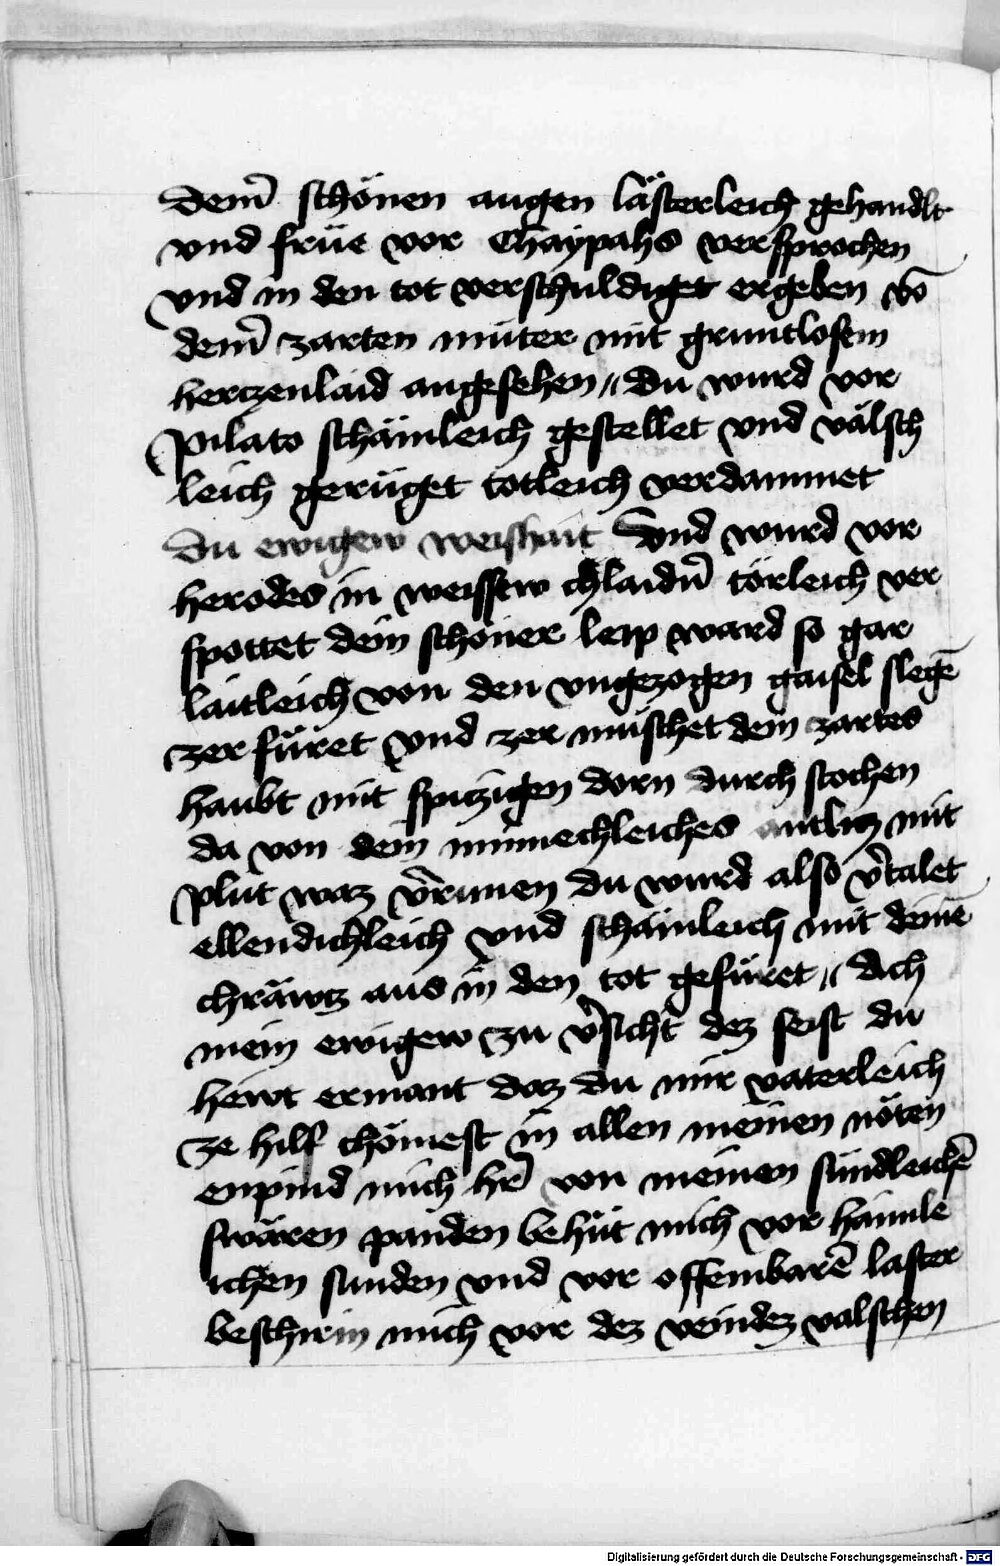 deinˀ schönen augen lästerleich gehandlt
vnd früe vor Chaypahs versprochen
vnd in den tot verschuldiget ergeben vō
deinˀ zarten müter mit gruntlosem
herczenlaid angesehen // du wurd vor
pilato schämleich gestellet vnd välsch
leich gerüget totleich verdammet
du ewigew weishait Vnd wurd vor
herodes in weissew chlaidn̄ törleich ver
spottet dein schöner leip ward so gar
laitleich von den vngezogen gaisel slegē
zerfüret vnd zer müschet dein zartes
haubt mit spiczigen dorn durch stochen
da von dein minnechleiches antlicz mit
plüt waz v̄runnen du wurd also v̄talet
ellendichleich vnd schämleich mit deinē
chräwcz aus in den tot gefüret // Ach
mein ewigew zu v̄sicht dez seist du
hewt ermant daz du mir vaterleich
ze hilf chömest in allen meinen nöten
enpind mich hr̄ von meinen sündleichē
swären panden behüt mich vor haimle
ichen sunden vnd vor offembarē laster
beschirm mich vor dez veindez valschen
Digitalisierung gefördert durch die Deutsche Forschungsgemeinschaft - DFG